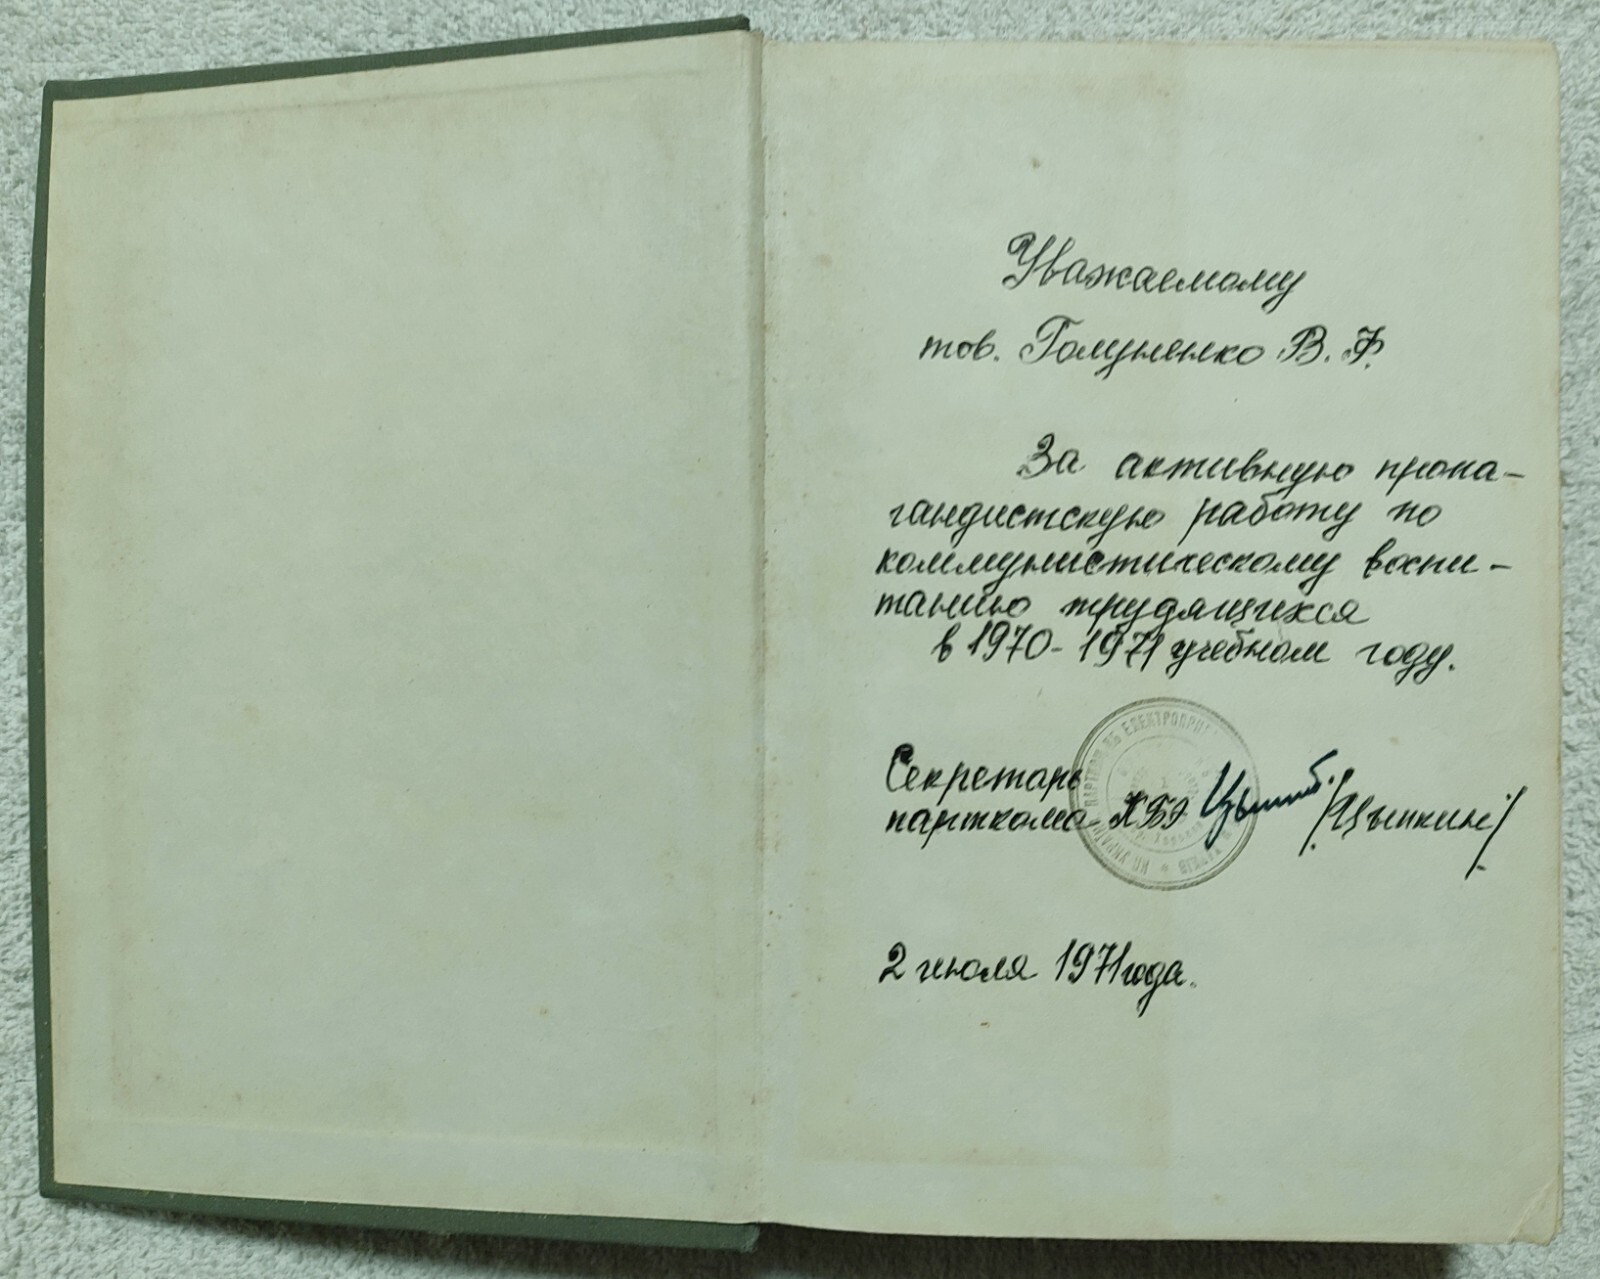 Уважаемому
тов. Голуненко В. Ф.
За активную пропа-
гандистскую работу по
коммунистическому воспи-
танию трудящихся
в 1970-1971 учебном году.
Секретарь
парткома ХБЭ /Цыпкин/
2 июля 1971 года.
ЕЛЕКТРОПРИ
КП УКРАЇНИ